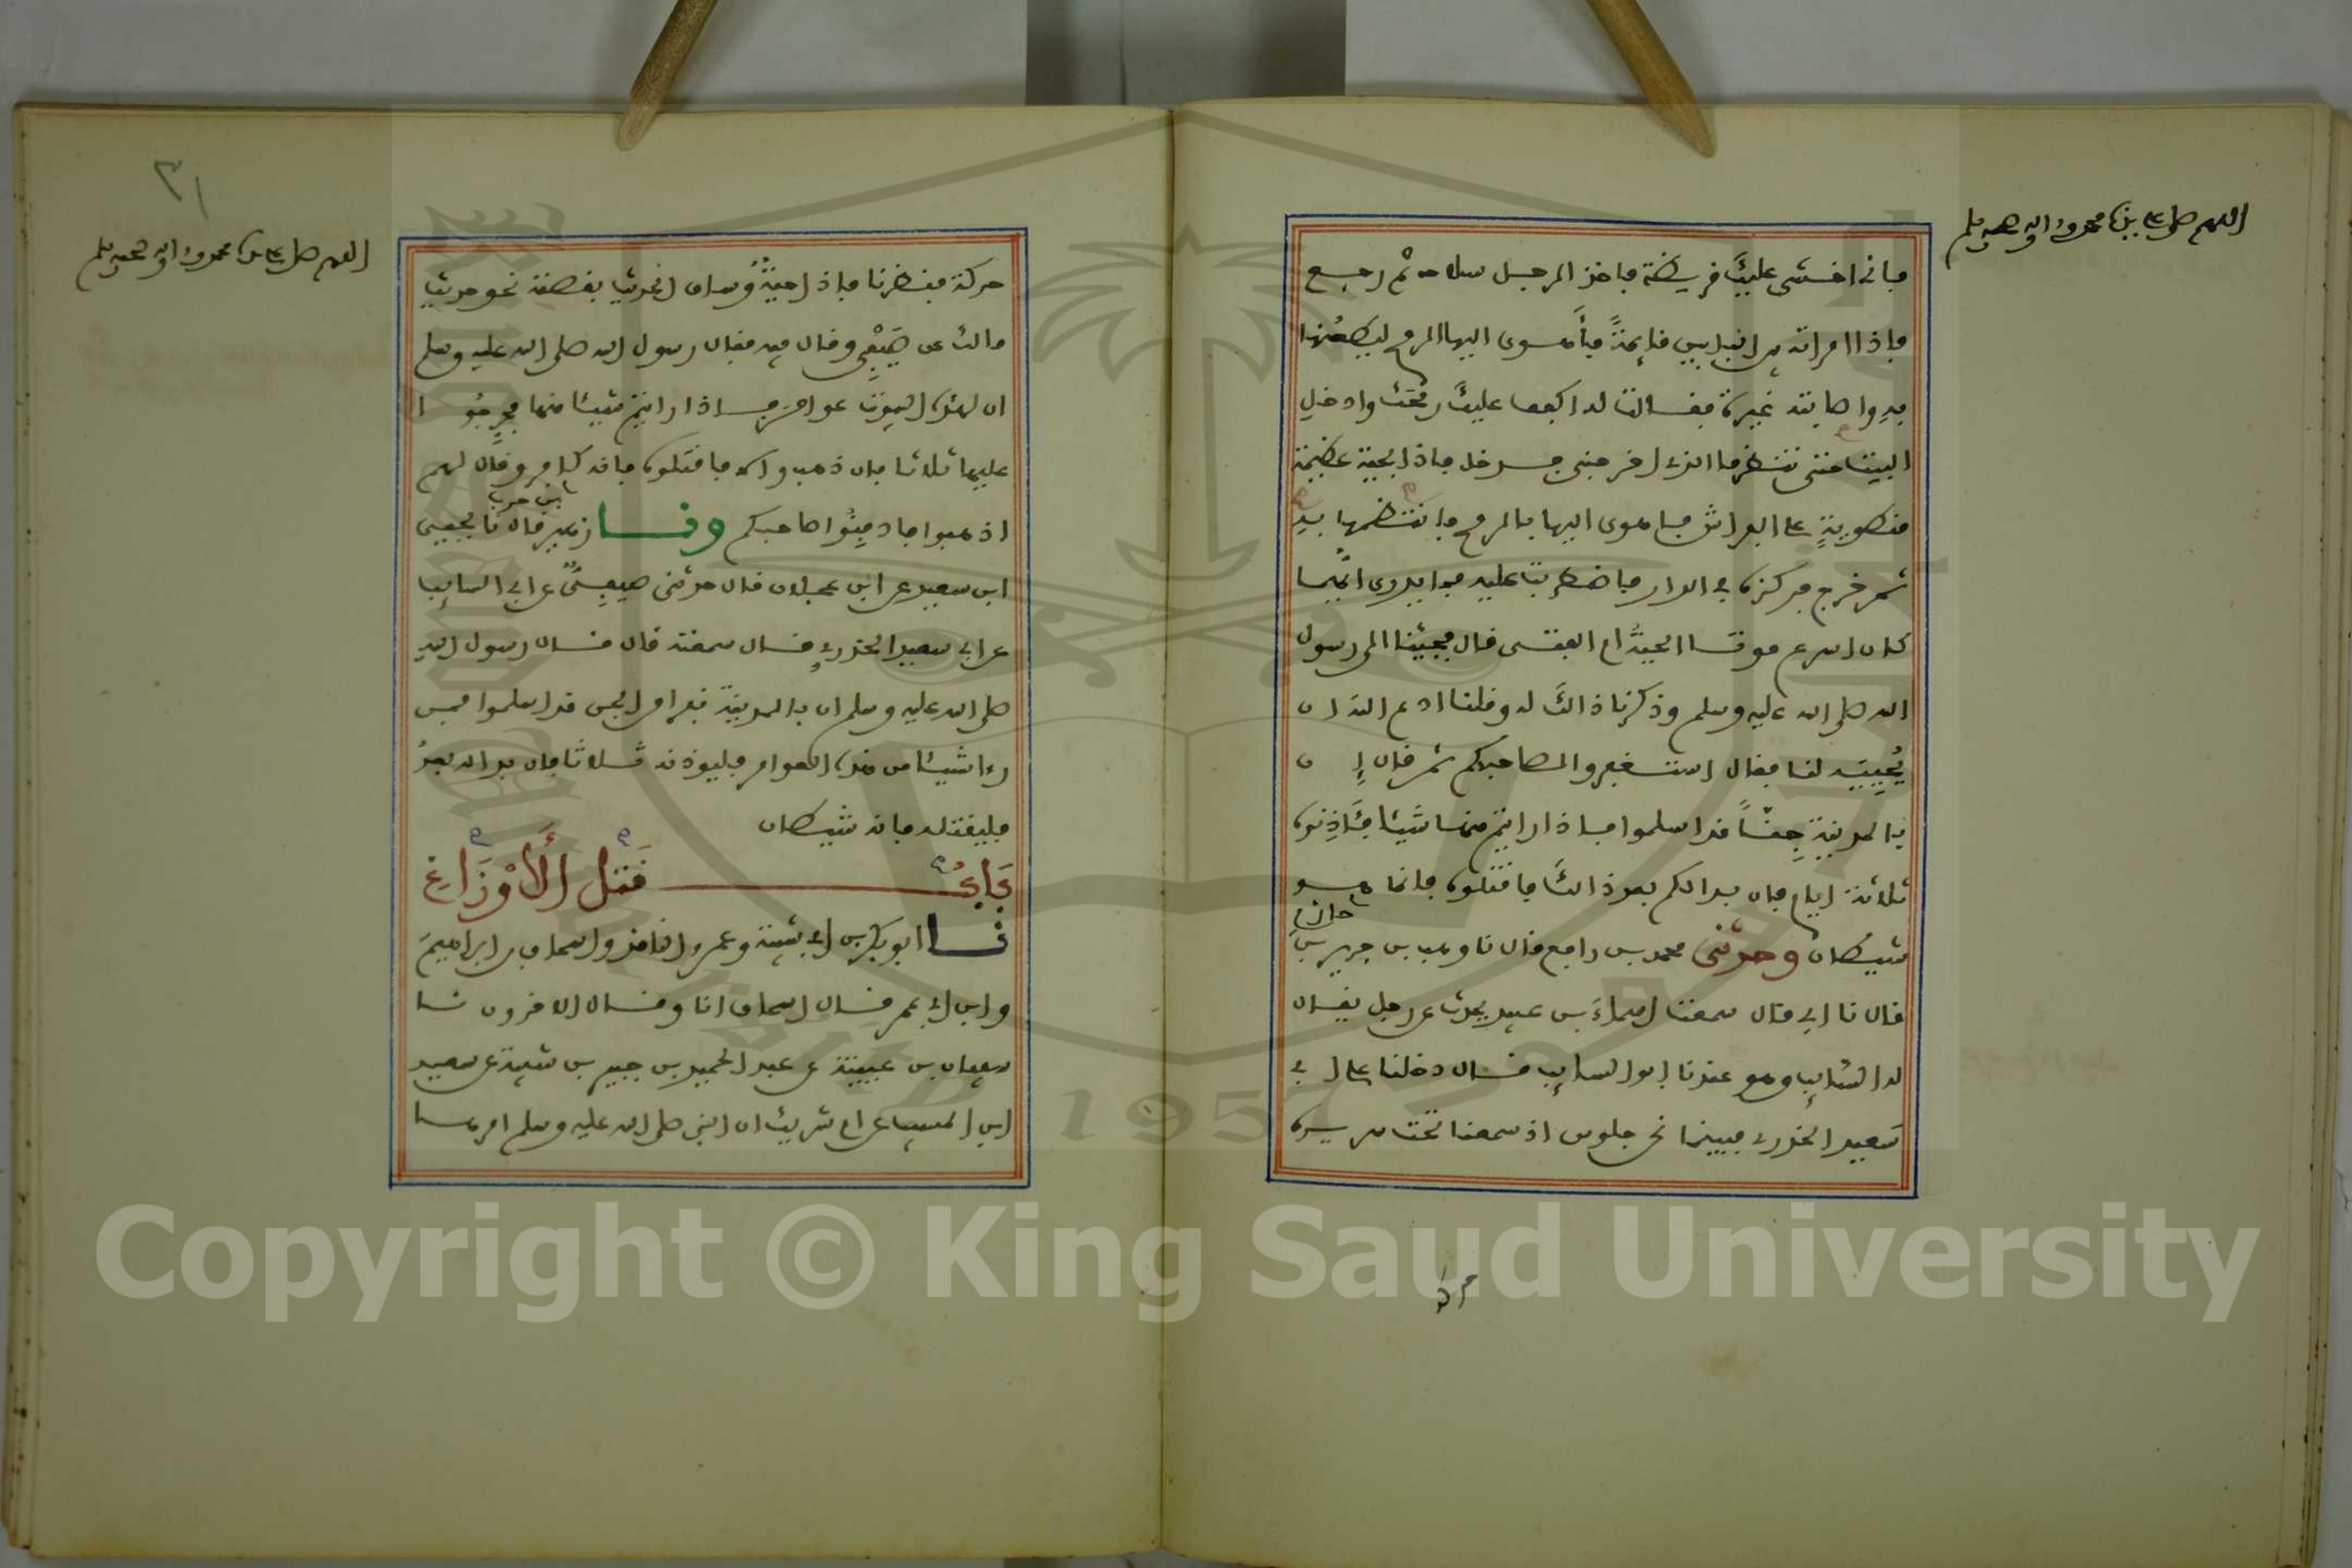 اللهم صل على سيدنا محمد وآله وصحبه وسلم
فاني اخشى عليك قريظة فاخذ الرجل سلاحه ثم رجع
فاذا امراته بين البابين قائمة فأهوى اليها الرمح ليطعنها
به واصابته غيرة فقالت له اكفف عليك رمحك وادخل
البيت حتى تنظر ما الذي اخرجني فدخل فاذا بحية عظيمة
منطوية على الفراش فاهوى اليها بالرمح فانتظمها به
ثم خرج فركزه في الدار فاضطربت عليه فما يدرى ايهما
كان اسرع موتا الحية ام الفتى قال فجئنا الى رسول
الله صلى الله عليه وسلم وذكرنا ذالك له وقلنا ادع الله ان
يحييه لنا فقال استغفروا لصاحبكم ثم قال ان
بالمدينة جنا قد اسلموا فاذا رايتم منها شيئا فئاذنوه
ثلاثة ايام فان بدا لكم بعد ذالك فاقتلوه فانما هو
شيطان وحدثني محمد بن رافع قال نا وهب بن جرير بن
حازم
قال نا ابي قال سمعت اسماء بن عبيد يحدث عن رجل يقال
له السائب وهو عندنا ابو السائب قال دخلنا على ابي
سعيد الخدري فبينما نحن جلوس اذ سمعنا تحت سريره
حركة
٣١
اللهم صل على سيدنا محمد وآله وصحبه وسلم
حركة فنظرنا فاذا حية وساق الحديث بقصته نحو حديث
مالك عن صيفي وقال فيه فقال رسول الله صلى الله عليه وسلم
ان لهذه البيوت عوامر فاذا رايتم شيئا منها فحرجوا
عليها ثلاثا فان ذهب والا فاقتلوه فانه كافر وقال لهم
اذهبوا فادفنوا صاحبكم ونا زهير قال نا يحيى
بن حرب
ابن سعيد عن ابن عجلان قال حدثني صيفي عن ابي السائب
عن ابي سعيد الخدري قال سمعته قال قال رسول الله
صلى الله عليه وسلم ان بالمدينة نفرا من الجن قد اسلموا فمن
رءا شيئا من هذه العوامر فليوذنه ثلاثا فان بدا له بعد
فليقتله فانه شيطان
بَابُ قَتْلِ الْأَوْزَاغِ
نا ابو بكر بن ابي شيبة وعمرو الناقد واسحاق بن ابراهيم
وابن ابي عمر قال اسحاق انا وقال الاخرون نا
سفيان بن عيينة عن عبد الحميد بن جبير بن شيبة عن سعيد
ابن المسيب عن ام شريك ان النبي صلى الله عليه وسلم امرها
Copyright © King Saud University
1957